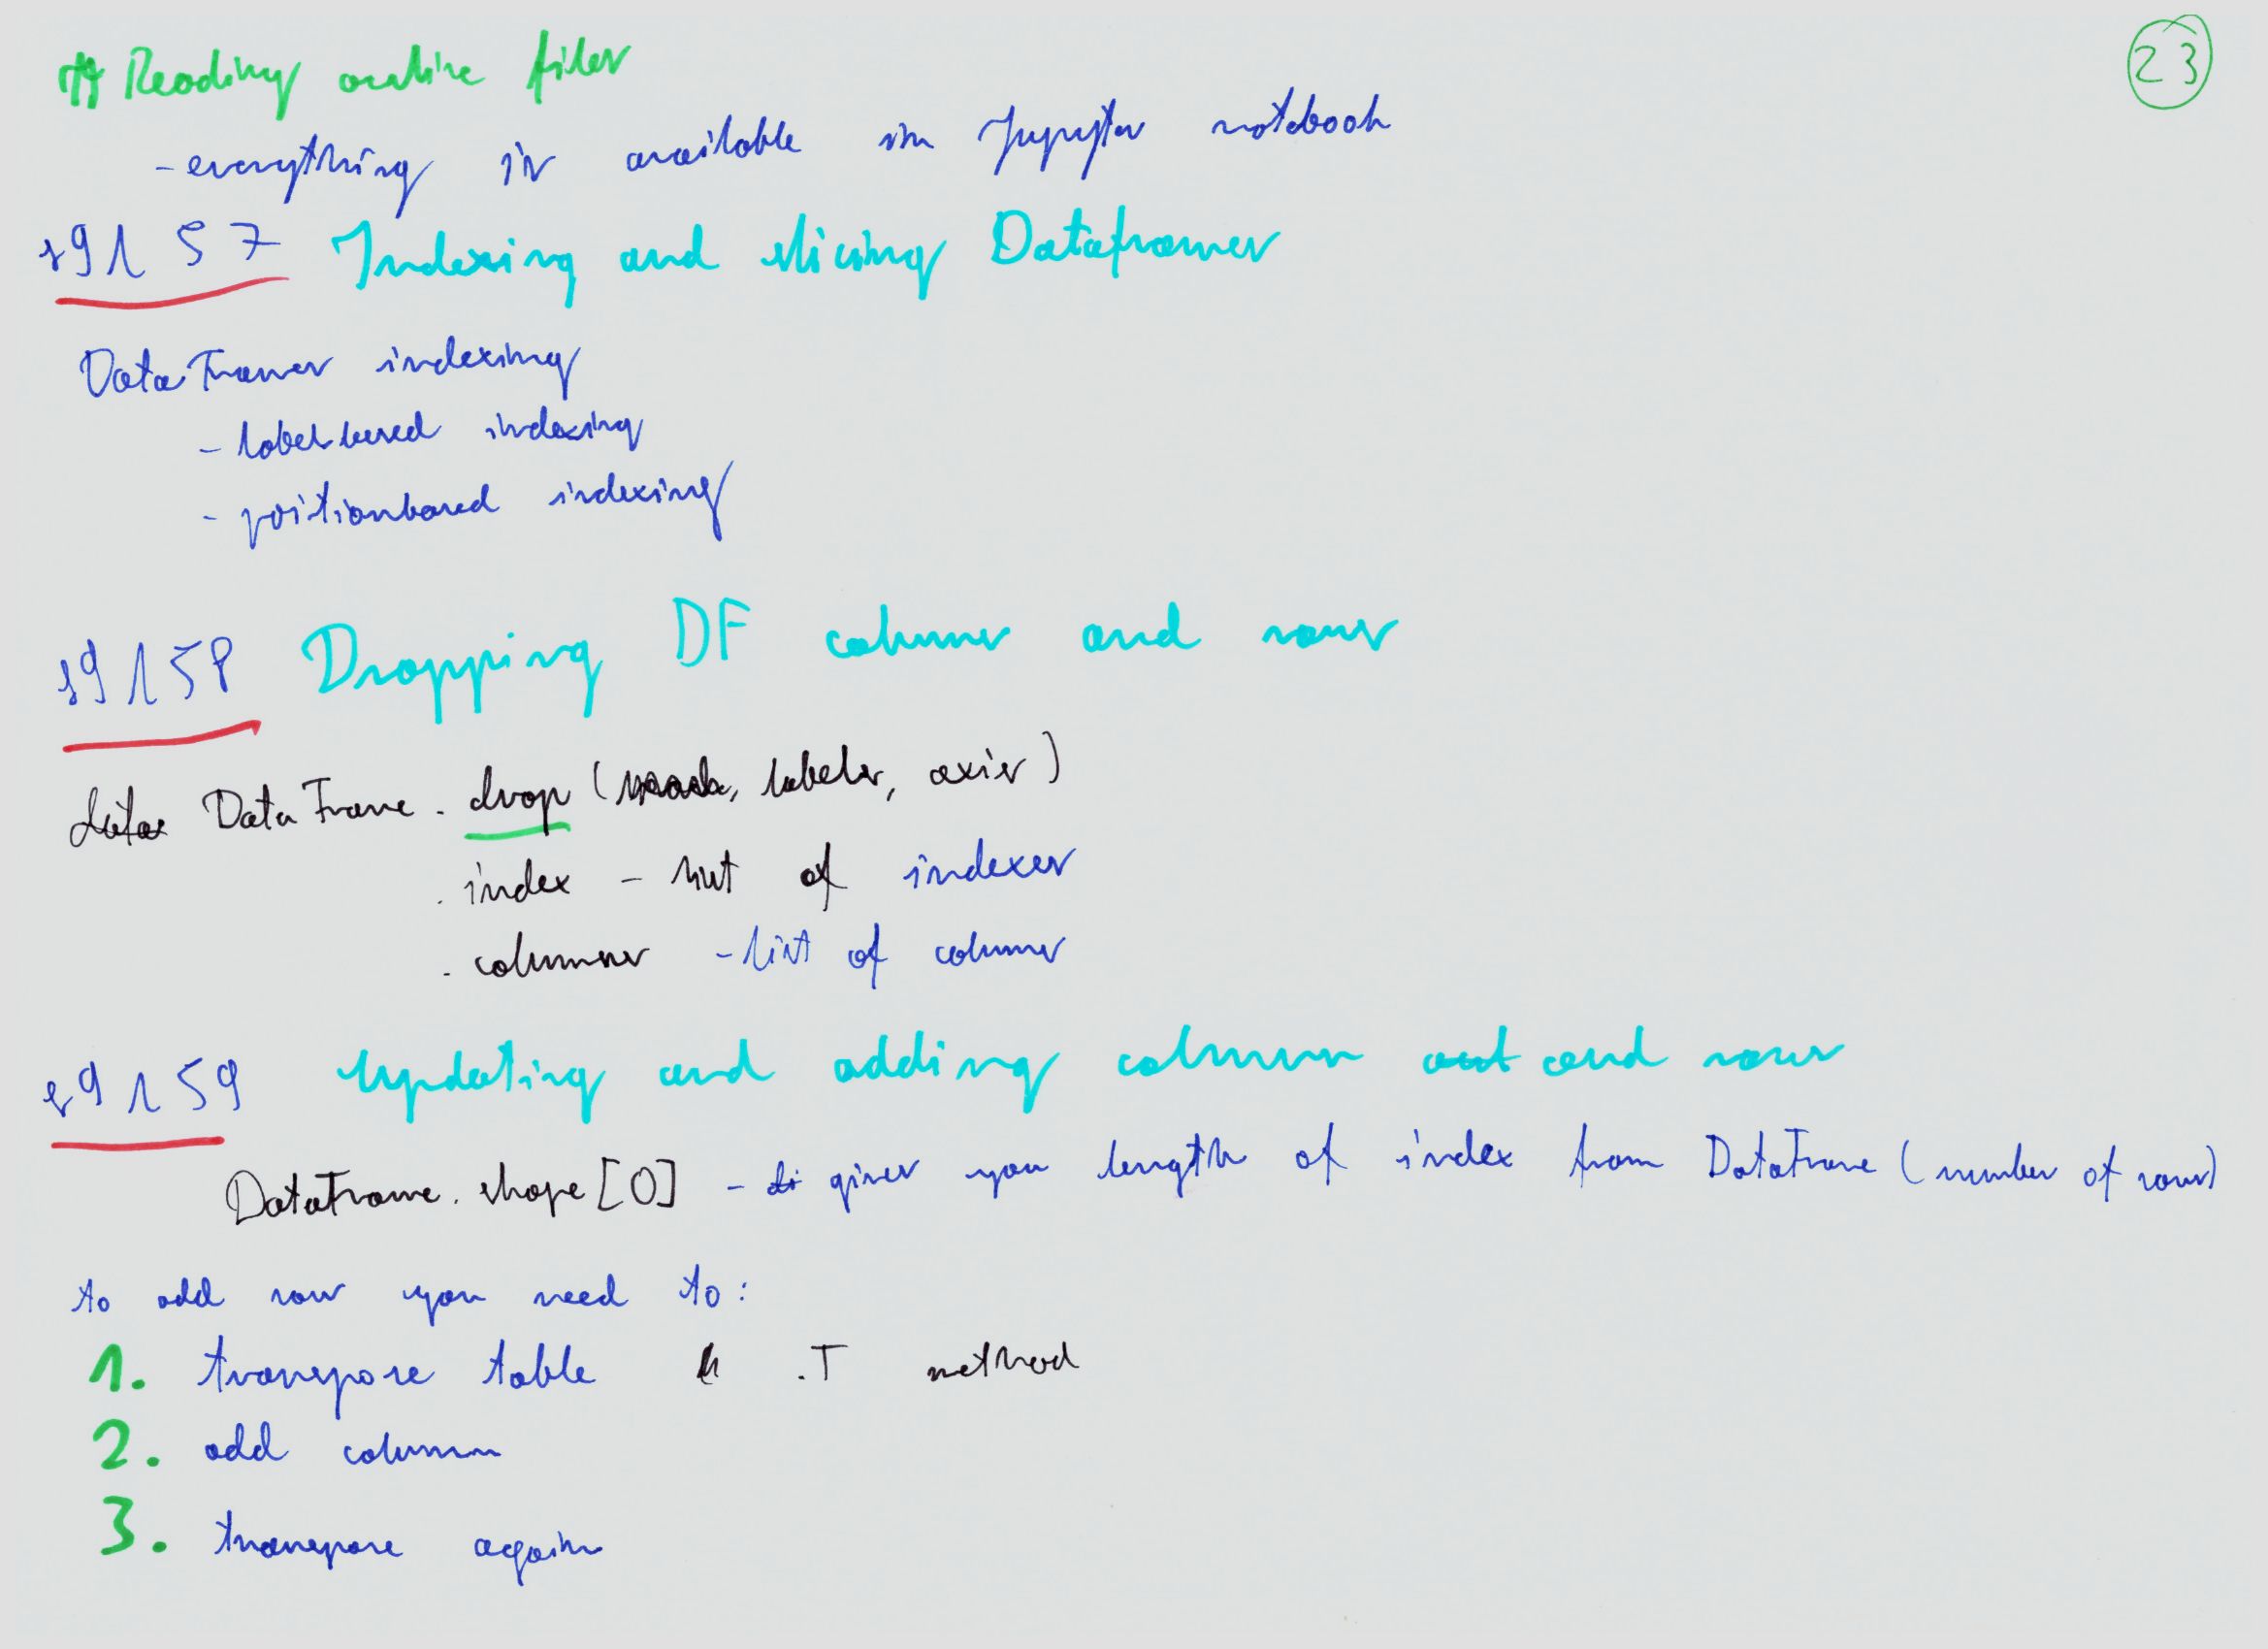 # Reading online files
23
- everything is available in Jupyter notebook
s9 L 57 Indexing and slicing Dataframes
DataFrames indexing
- label based indexing
- position based indexing
s9 L 58 Dropping DF columns and rows
DataFrame . drop ( labels, axis )
. index - list of indexes
. columns - list of columns
s9 L 59 Updating and adding column and rows
DataFrame . shape [0] - gives you length of index from DataFrame ( number of rows)
to add row you need to :
1. transpose table .T method
2. add column
3. transpose again